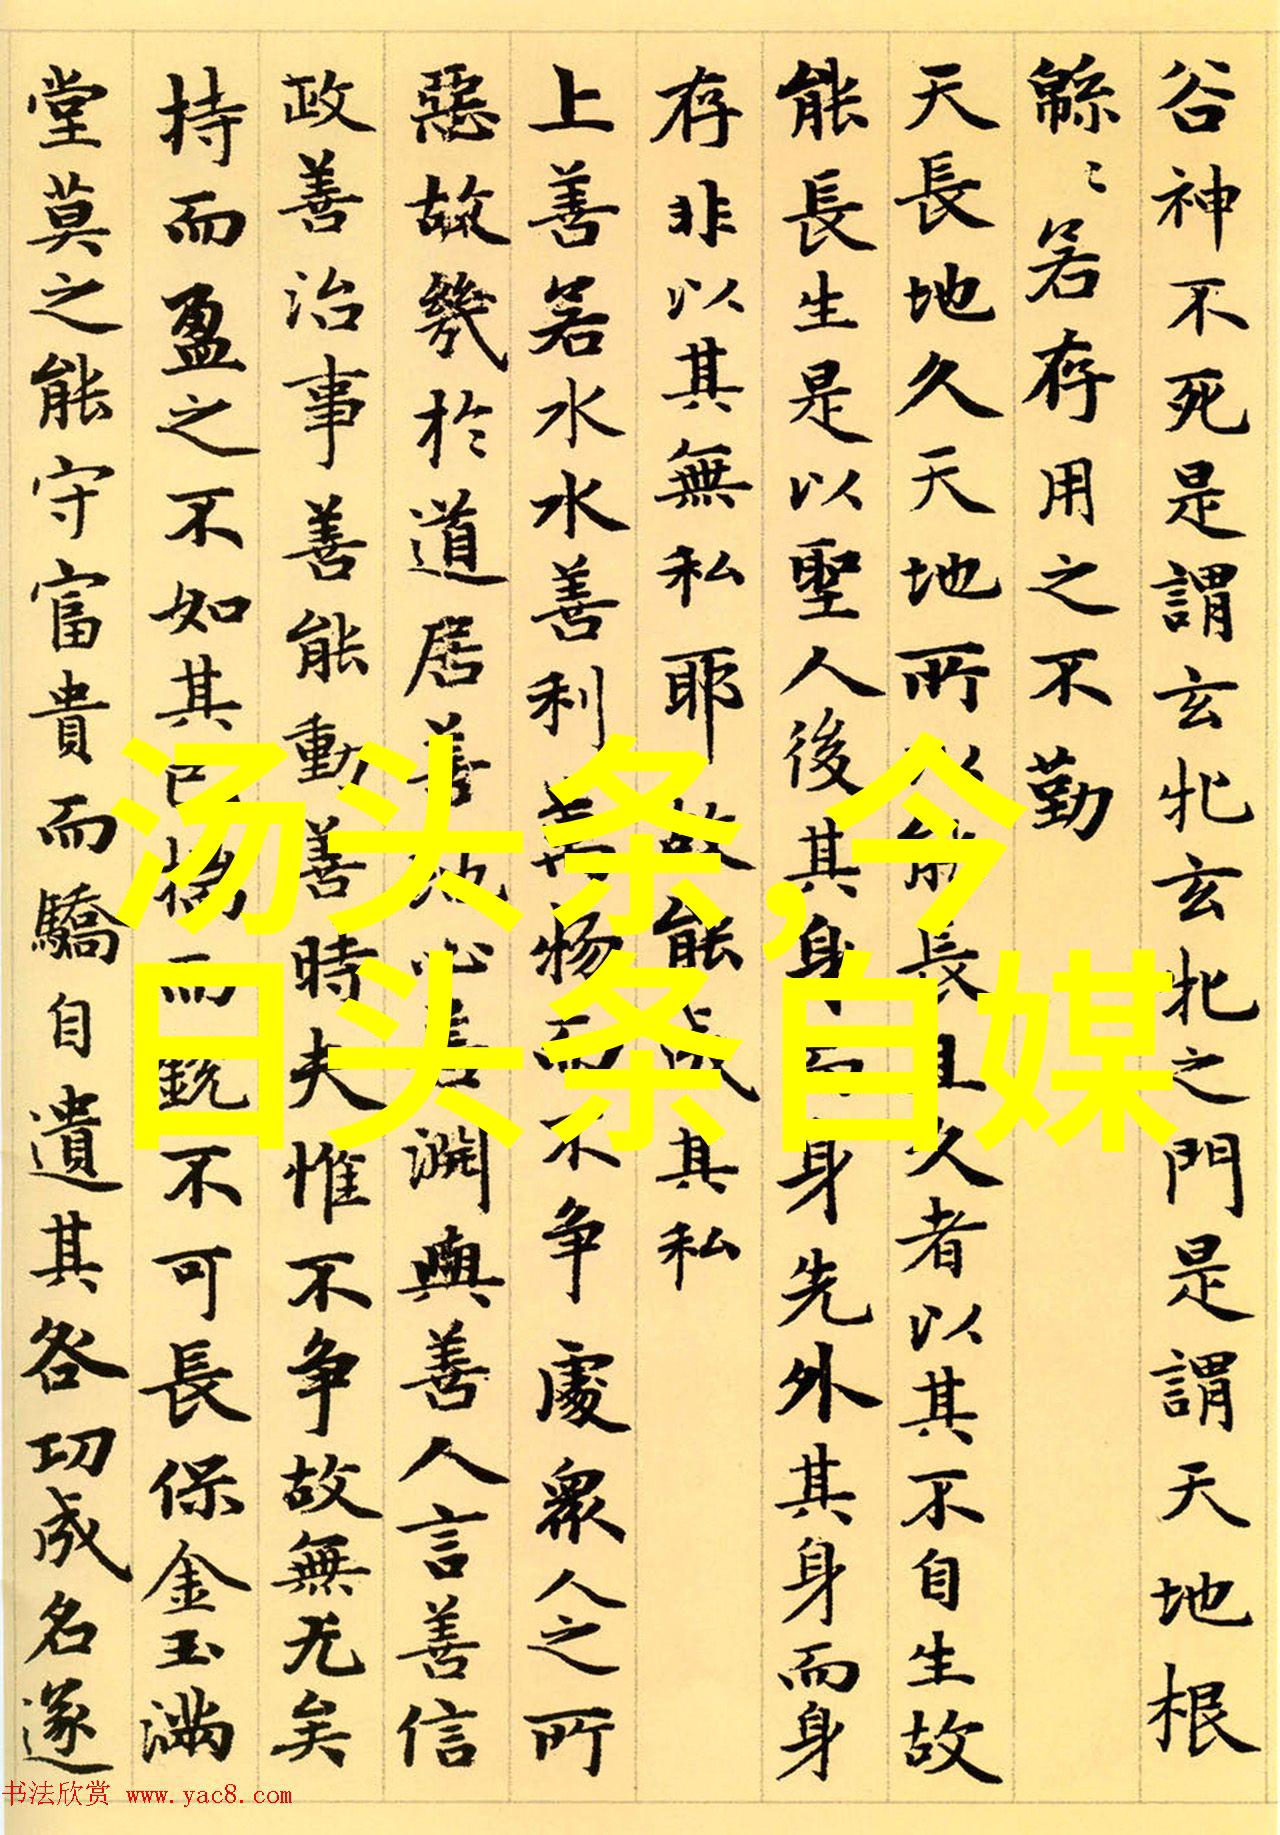 谷神不死是謂玄牝玄牝之門是謂天地根
緜〻若存用之不勤
天長地久天地所以能長且久者以其不自生故
能長生是以聖人後其身而身先外其身而身
存非以其無私耶故能成其私
上善若水水善利萬物而不争處衆人之所
惡故幾於道居善地心善淵與善人言善信
政善治事善能動善時夫惟不争故無尤矣
持而盈之不如其已揣而銳不可長保金玉滿
堂莫之能守富貴而驕自遺其咎功成名遂
汤头条,今
日头条自媒
书法欣赏 www.yac8.com